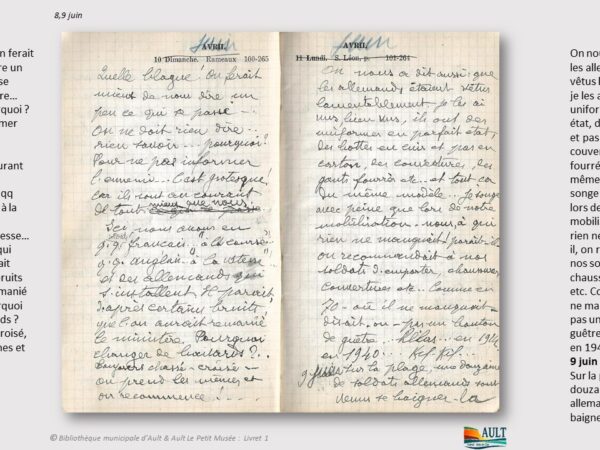 8,9 juin
n ferait
re un
se
re...
rquoi ?
mer
urant
qq
à la
esse...
qui
ait
ruits
manié
rquoi
ds ?
roisé,
nes et
juin
AVRIL
10 Dimanche. Rameaux 100-265
Quelle blague ! On ferait
mieux de nous dire un
peu ce qui se passe
On ne doit rien dire..
rien savoir... pourquoi ?
Pour ne pas informer
l'ennemi... C'est grotesque !
car ils sont au courant
de tout mieux que nous
Ici nous avons eu
q.q. français
q.q. anglais
et des allemands qui
s'installent. Il paraît
d'après certains bruits
que l'on aurait remanié
le ministère. Pourquoi
changer de
chassé-croisé
on prend les mêmes et
on recommence
juin
AVRIL
11 Lundi. S. Léon, p. 101-264
On nous a dit aussi que
les allemands étaient vêtus
lamentablement, je les ai
vus bien vus, ils ont des
uniformes en parfait état,
des bottes en cuir et pas en
carton, des couvertures, des
gants fourrés etc. et tout cas
du même modèle. je songe
avec peine que lors de notre
mobilisation nous, à qui
rien ne manquait ! paraît-il
on recommandait à nos
soldats d'emporter, chaussures,
couvertures etc. Comme en
70 où il ne manquait
disait-on pas un bouton
de guêtre. Hélas.. en 194
en 1940. Kif Kif..
9 juin Sur la plage, une douzaine
de soldats allemands sont
venus se baigner. la
On nou
les alle
vêtus l
je les a
unifor
état, d
et pas
couver
fourré
même
songe
lors de
mobili
rien ne
il, on r
nos so
chauss
etc. Co
ne ma
pas un
guêtre
en 194
9 juin
Sur la p
douza
baigne
© Bibliothèque municipale d'Ault & Ault Le Petit Musée : Livret 1
AULT